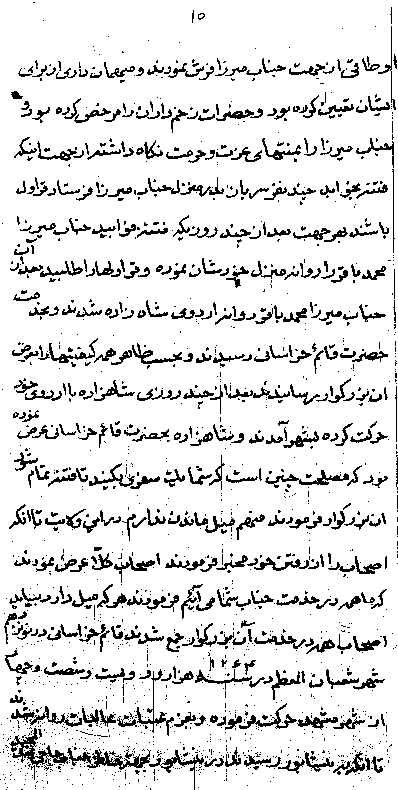 ١٥
اوطاقی از جهت جناب میرزا فرش نمودند و میهمان داری از برای
ایشان تعیین کرده بود و حضرات زخم داران را مرخص کرده بود و
جناب میرزا را بمنتهای عزت و حرمت نکاه داشتند از جهت اینکه
فتنه بخوابد چند نفر سرباز بدر منزل جناب میرزا فرستاد قراول
باشند بهر جهت بعد از چند روز یکه فتنه خوابید جناب میرزا
محمد باقر را روانه منزل خودشان نموده و قراولها را طلبید بعد از آن
جناب میرزا محمد باقر روانه اردوی شاه زاده شدند و بخدمت
حضرت قائم خراسانی رسیدند و بحسب ظاهر همه کیفیتها را بعرض
آن بزرکوار رسانیدند بعد از چند روزی شاهزاده با اردوی خود
حرکت کرده بشهر آمدند و شاهزاده بحضرت قائم خراسانی عرض نموده
بود که مصلحت چنین است که شما یک سفری بکنید تا فتنه تمام شود
آن بزرکوار فرمودند منهم میل ماندن ندارم در این ولایت تا آنکه
اصحاب را از رفتن خود مخبر فرمودند اصحاب کلا عرض نمودند
که ماهم در خدمت جناب شما می آئیم فرمودند هر که میل دارد بیاید
اصحاب همه در خدمت آن بزرکوار جمع شدند قائم خراسانی در نوزدهم
شهر شعبان المعظم در سنه ١٢٦٤ هزار و دویست و شصت و چهار
از شهر مشهد حرکت فرموده و بعزم عتبات عالیات روانه شدند
تا آنکه به نیشابور رسیدند در نیشابور